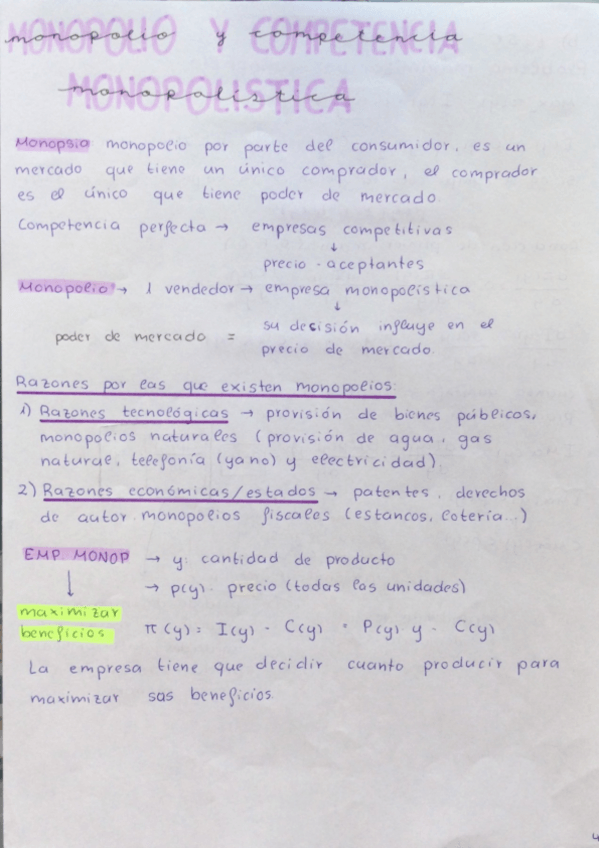 MONOPOLIO Y COMPETENCIA
MONOPOLISTICA
Monopsio monopolio por parte del consumidor, es un
mercado que tiene un único comprador, el comprador
es el único que tiene poder de mercado
Competencia perfecta → empresas competitivas
↓
precio-aceptantes
Monopolio → 1 vendedor → empresa monopolistica
↓
poder de mercado = su decisión influye en el
precio de mercado.
Razones por las que existen monopolios:
1) Razones tecnológicas → provisión de bienes públicos,
monopolios naturales (provisión de agua, gas
natural, telefonía (ya no) y electricidad)
2) Razones económicas/estados → patentes, derechos
de autor monopolios fiscales (estancos, lotería...)
EMP. MONOP → y: cantidad de producto
↓ → p(y). precio (todas las unidades)
maximizar
beneficios π(y) = I(y) - C(y) = P(y) · y - C(y)
La empresa tiene que decidir cuanto producir para
maximizar sas beneficios.
4